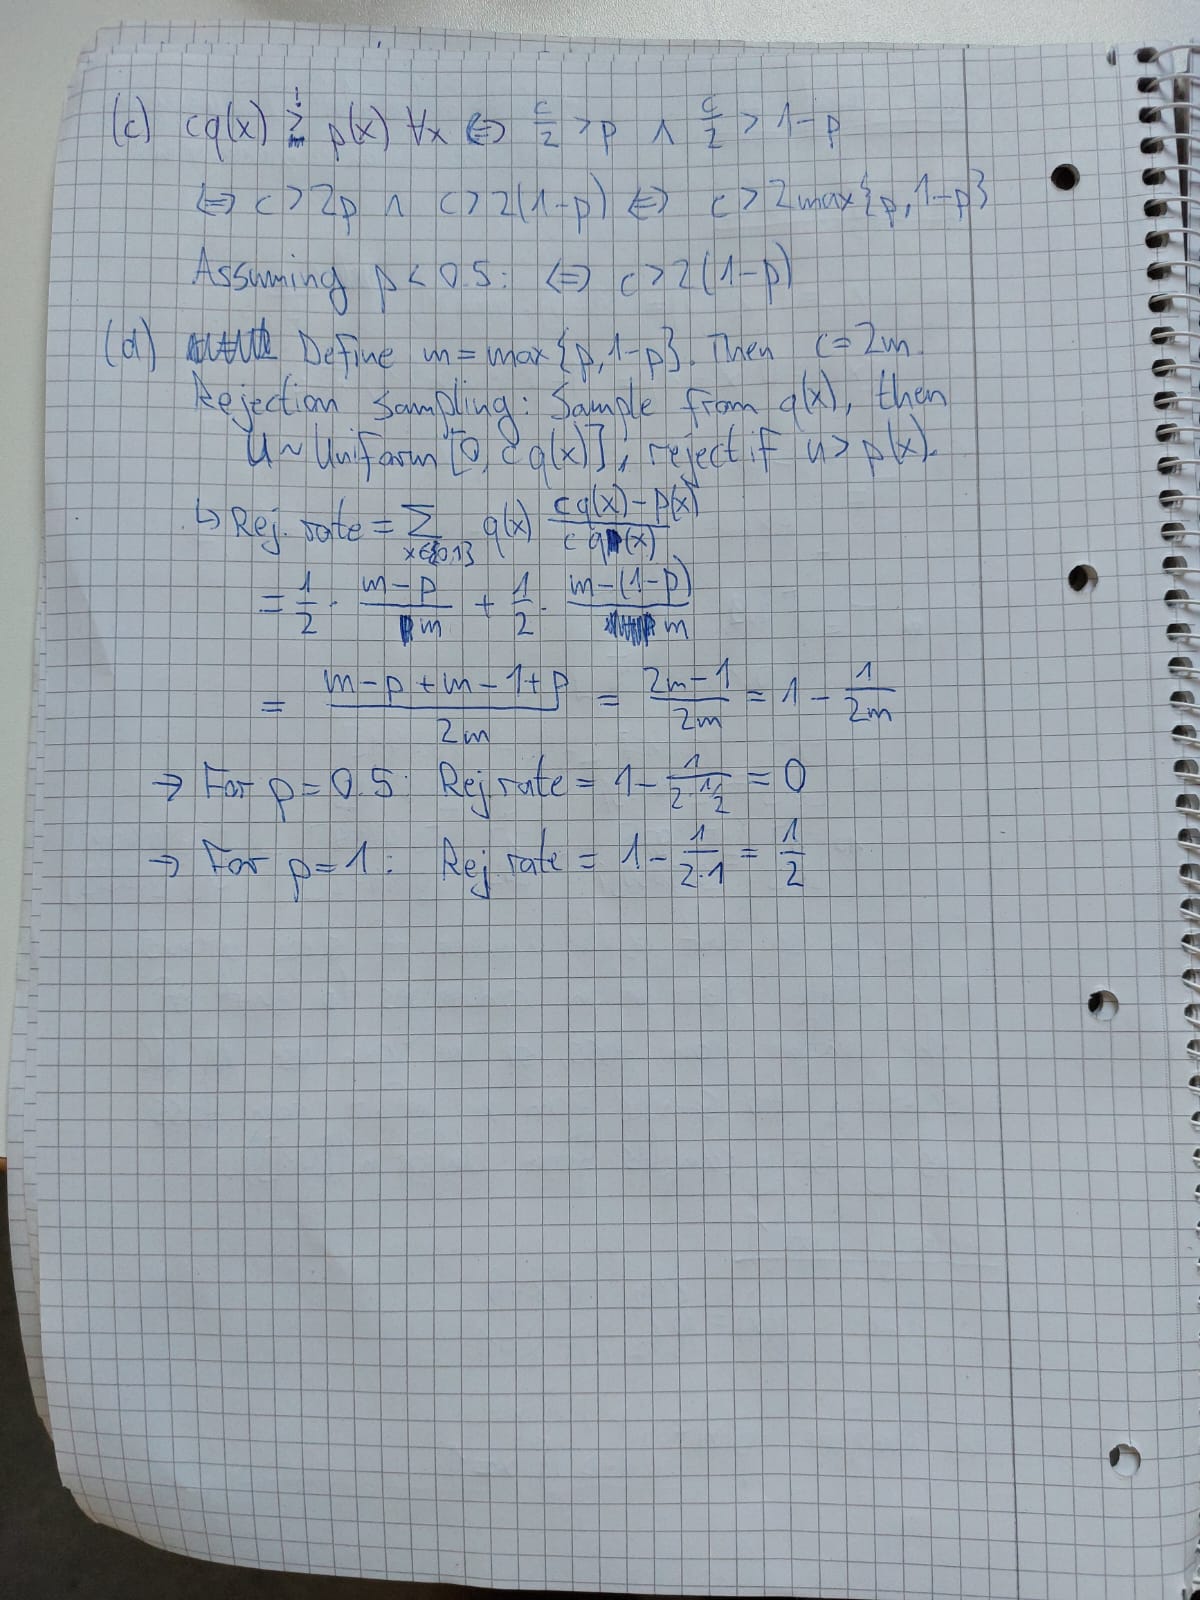 (c) cq(x) ≥! p(x) ∀x ⇔ c/2 > p ∧ c/2 > 1-p
⇔ c > 2p ∧ c > 2(1-p) ⇔ c > 2max{p,1-p}
Assuming p < 0.5: ⇔ c > 2(1-p)
(d) Define m = max{p,1-p}. Then c = 2m.
Rejection Sampling: Sample from q(x), then
u ~ Uniform[0, cq(x)], reject if u > p(x).
↳ Rej. rate = ∑_{x∈{0,1}} q(x) (cq(x)-p(x))/(cq(x))
= 1/2 · (m-p)/m + 1/2 · (m-(1-p))/m
= (m-p+m-1+p)/(2m) = (2m-1)/(2m) = 1 - 1/(2m)
→ For p = 0.5: Rej rate = 1 - 1/(2·1/2) = 0
→ For p = 1: Rej rate = 1 - 1/(2·1) = 1/2